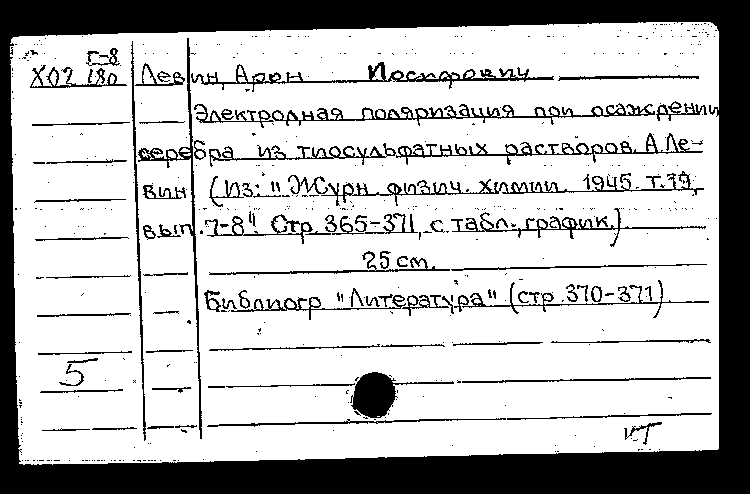 Г-8
Х02 180 Левин, Арон Иосифович
Электродная поляризация при осаждении
серебра из тиосульфатных растворов. А. Ле-
вин (Из: "Журн. физич. химии. 1945. т. 19,
вып. 7-8". Стр. 365-371, с табл., график.)
25 cm.
Библиогр "Литература" (стр. 370-371)
5
КТ